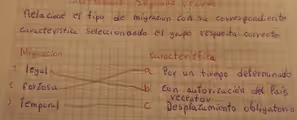 Relacione el tipo de migración con su correspondiente
característica seleccionando el grupo respuesta correcta
Migración
característica
legal
a Por un tiempo determinado
forzosa
b Con autorización del País
receptor
temporal
c Desplazamiento obligatorio